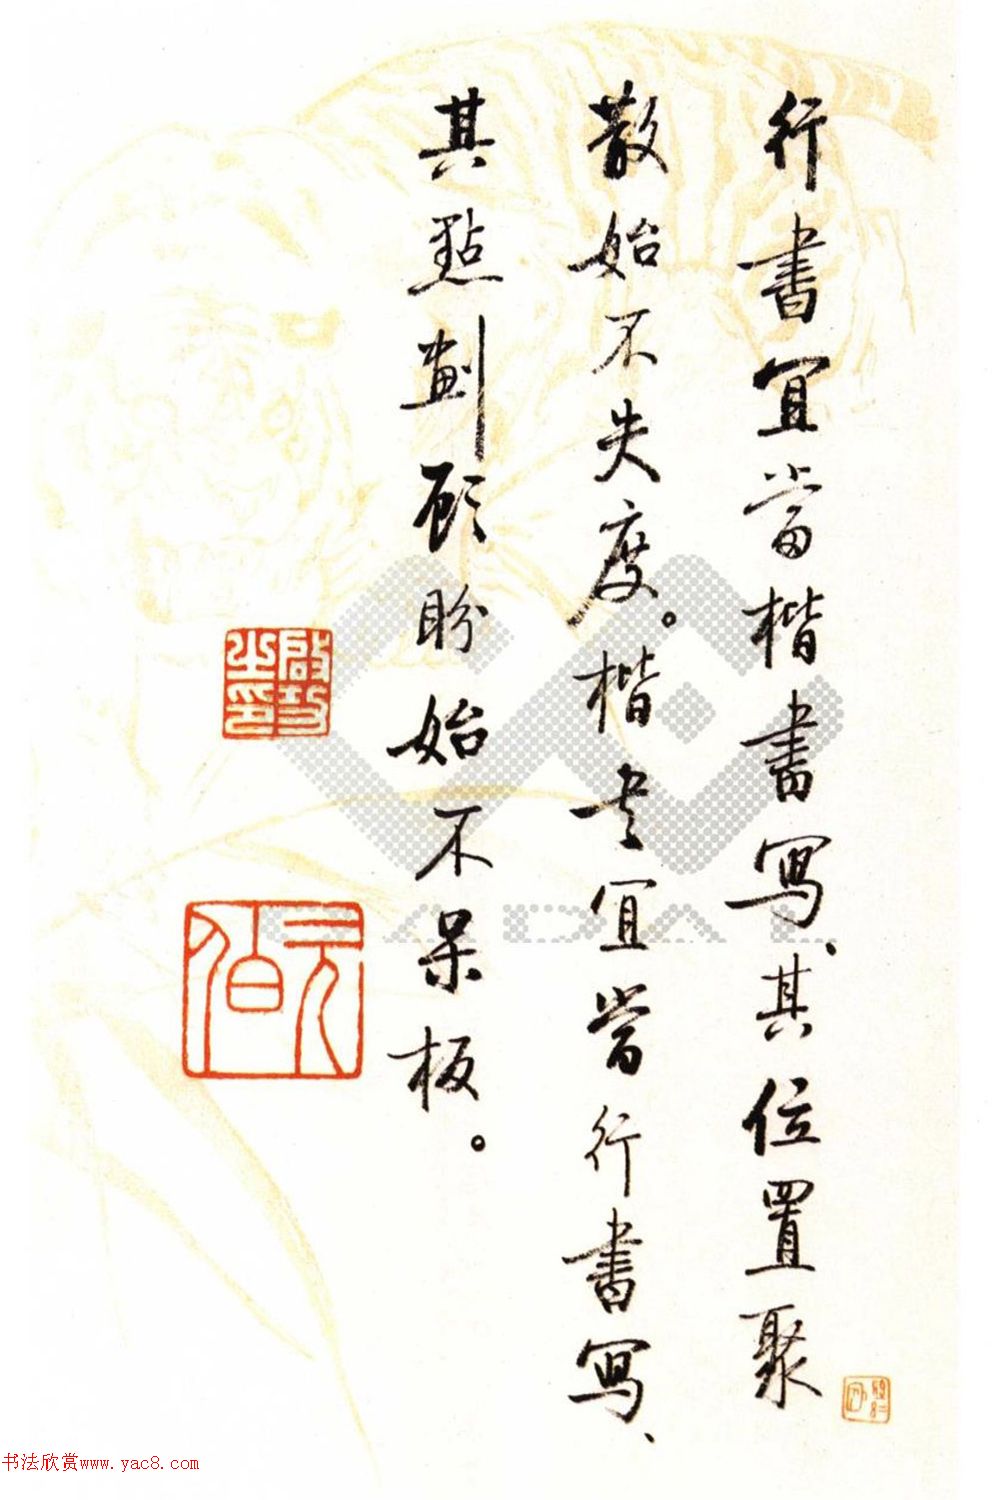 行書宜當楷書寫、其位置聚
散始不失度。楷书宜當行書寫、
其點劃顾盼始不呆板。
啟功之印
元伯
CADAL
书法欣赏www.yac8.com